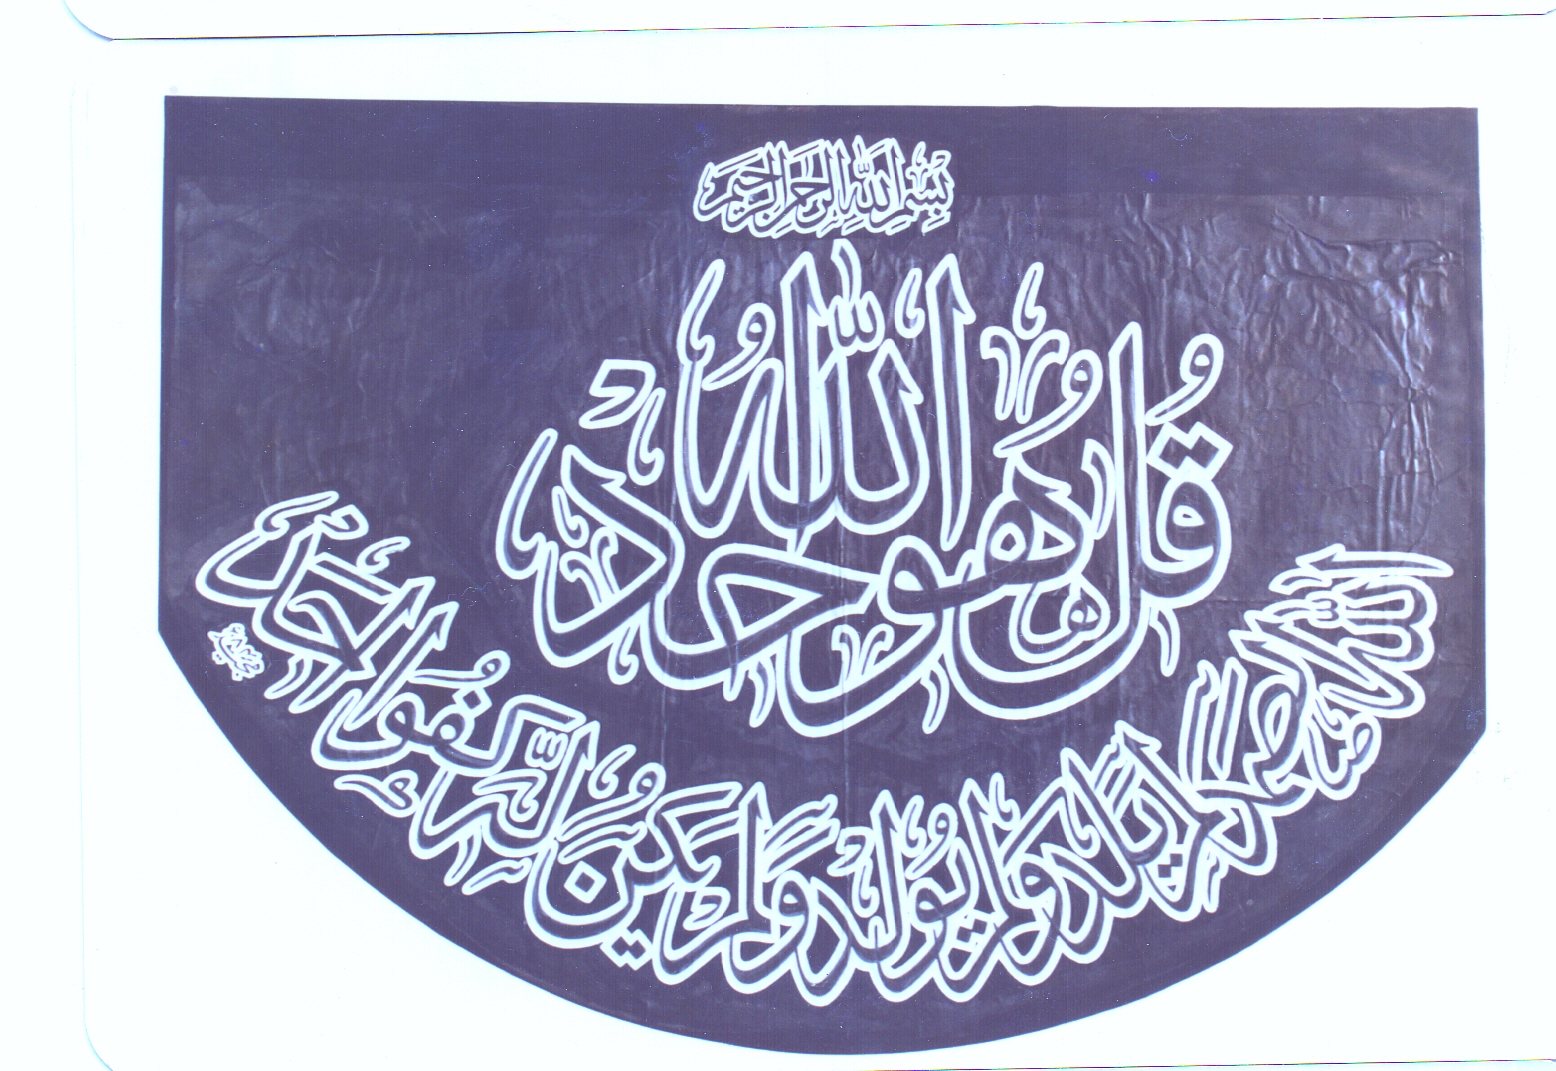 بِسْمِ اللهِ الرَّحْمٰنِ الرَّحِيْمِ
قُلْ هُوَ اللهُ أَحَدٌ
اللهُ الصَّمَدُ لَمْ يَلِدْ وَلَمْ يُولَدْ وَلَمْ يَكُنْ لَّهُ كُفُوًا أَحَدٌ